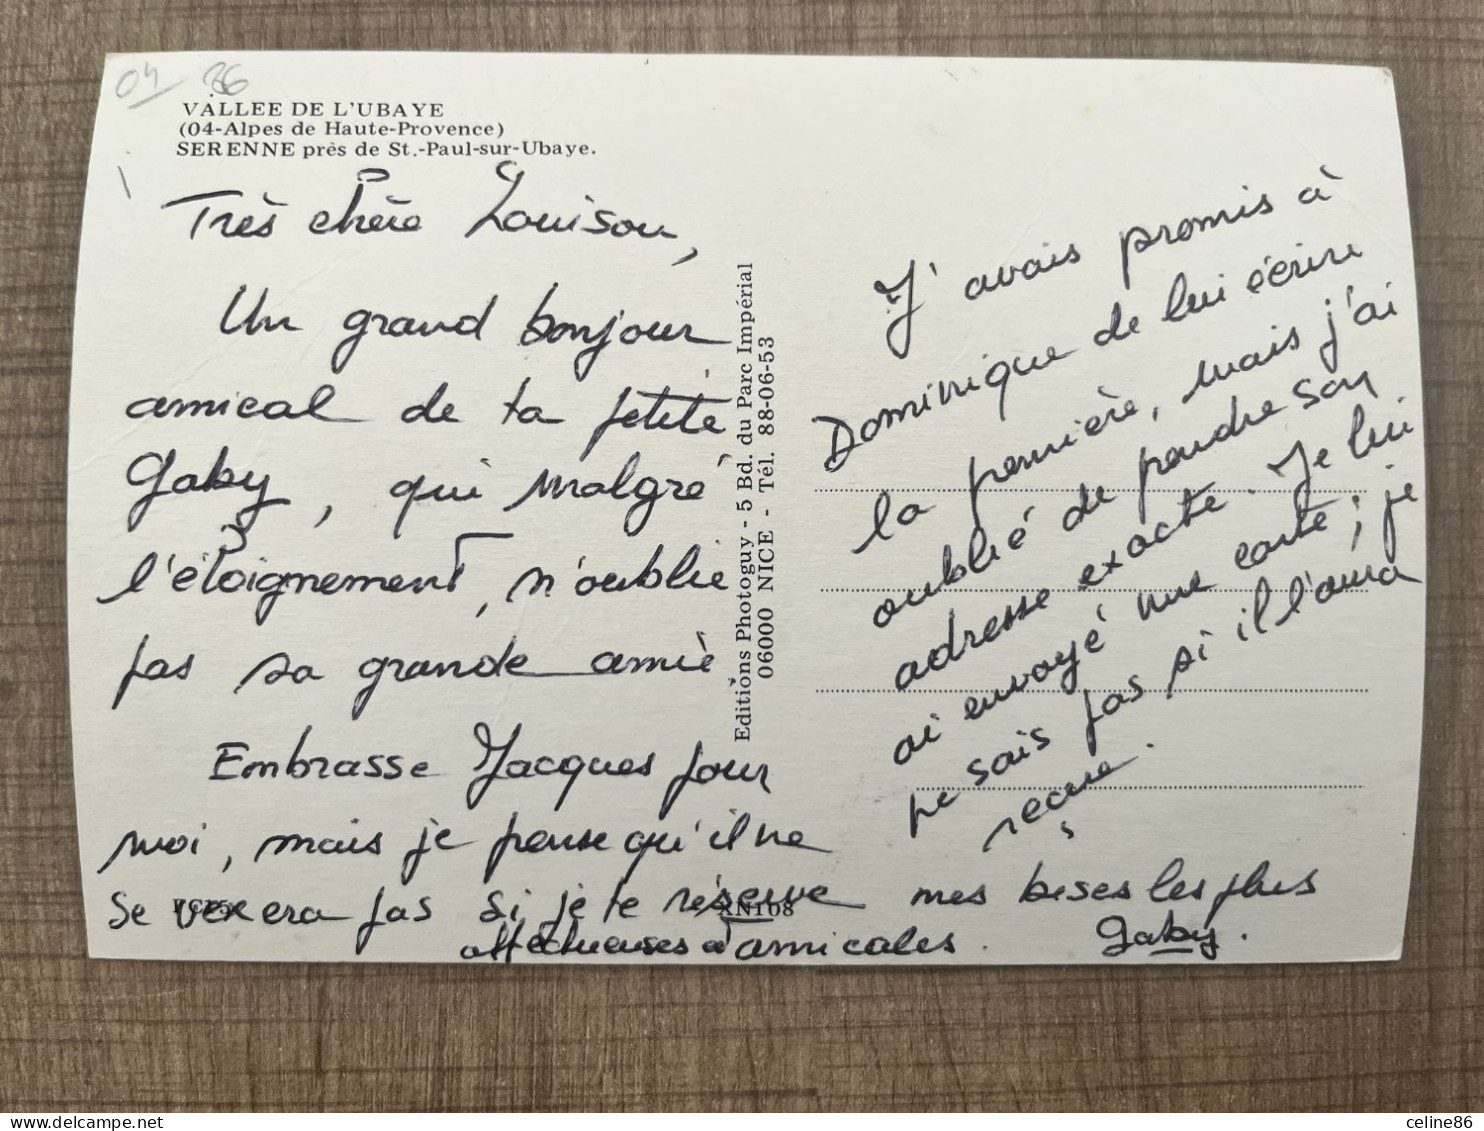 04 86
VALLEE DE L'UBAYE
(04-Alpes de Haute-Provence)
SERENNE près de St.-Paul-sur-Ubaye.
Très chère Louison,
Un grand bonjour
amical de ta petite
Gaby, qui malgré
l'éloignement, n'oublie
pas sa grande amie
Embrasse Jacques pour
moi, mais je pense qu'il ne
se vexera pas si je te réserve mes bises les plus
affectueuses et amicales. Gaby.
Editions Photoguy - 5 Bd. du Parc Impérial
06000 NICE - Tél. 88-06-53
J'avais promis à
Dominique de lui écrire
la première, mais j'ai
oublié de prendre son
adresse exacte. Je lui
ai envoyé une carte; je
ne sais pas si il l'aura
reçue.
AN108
celine86